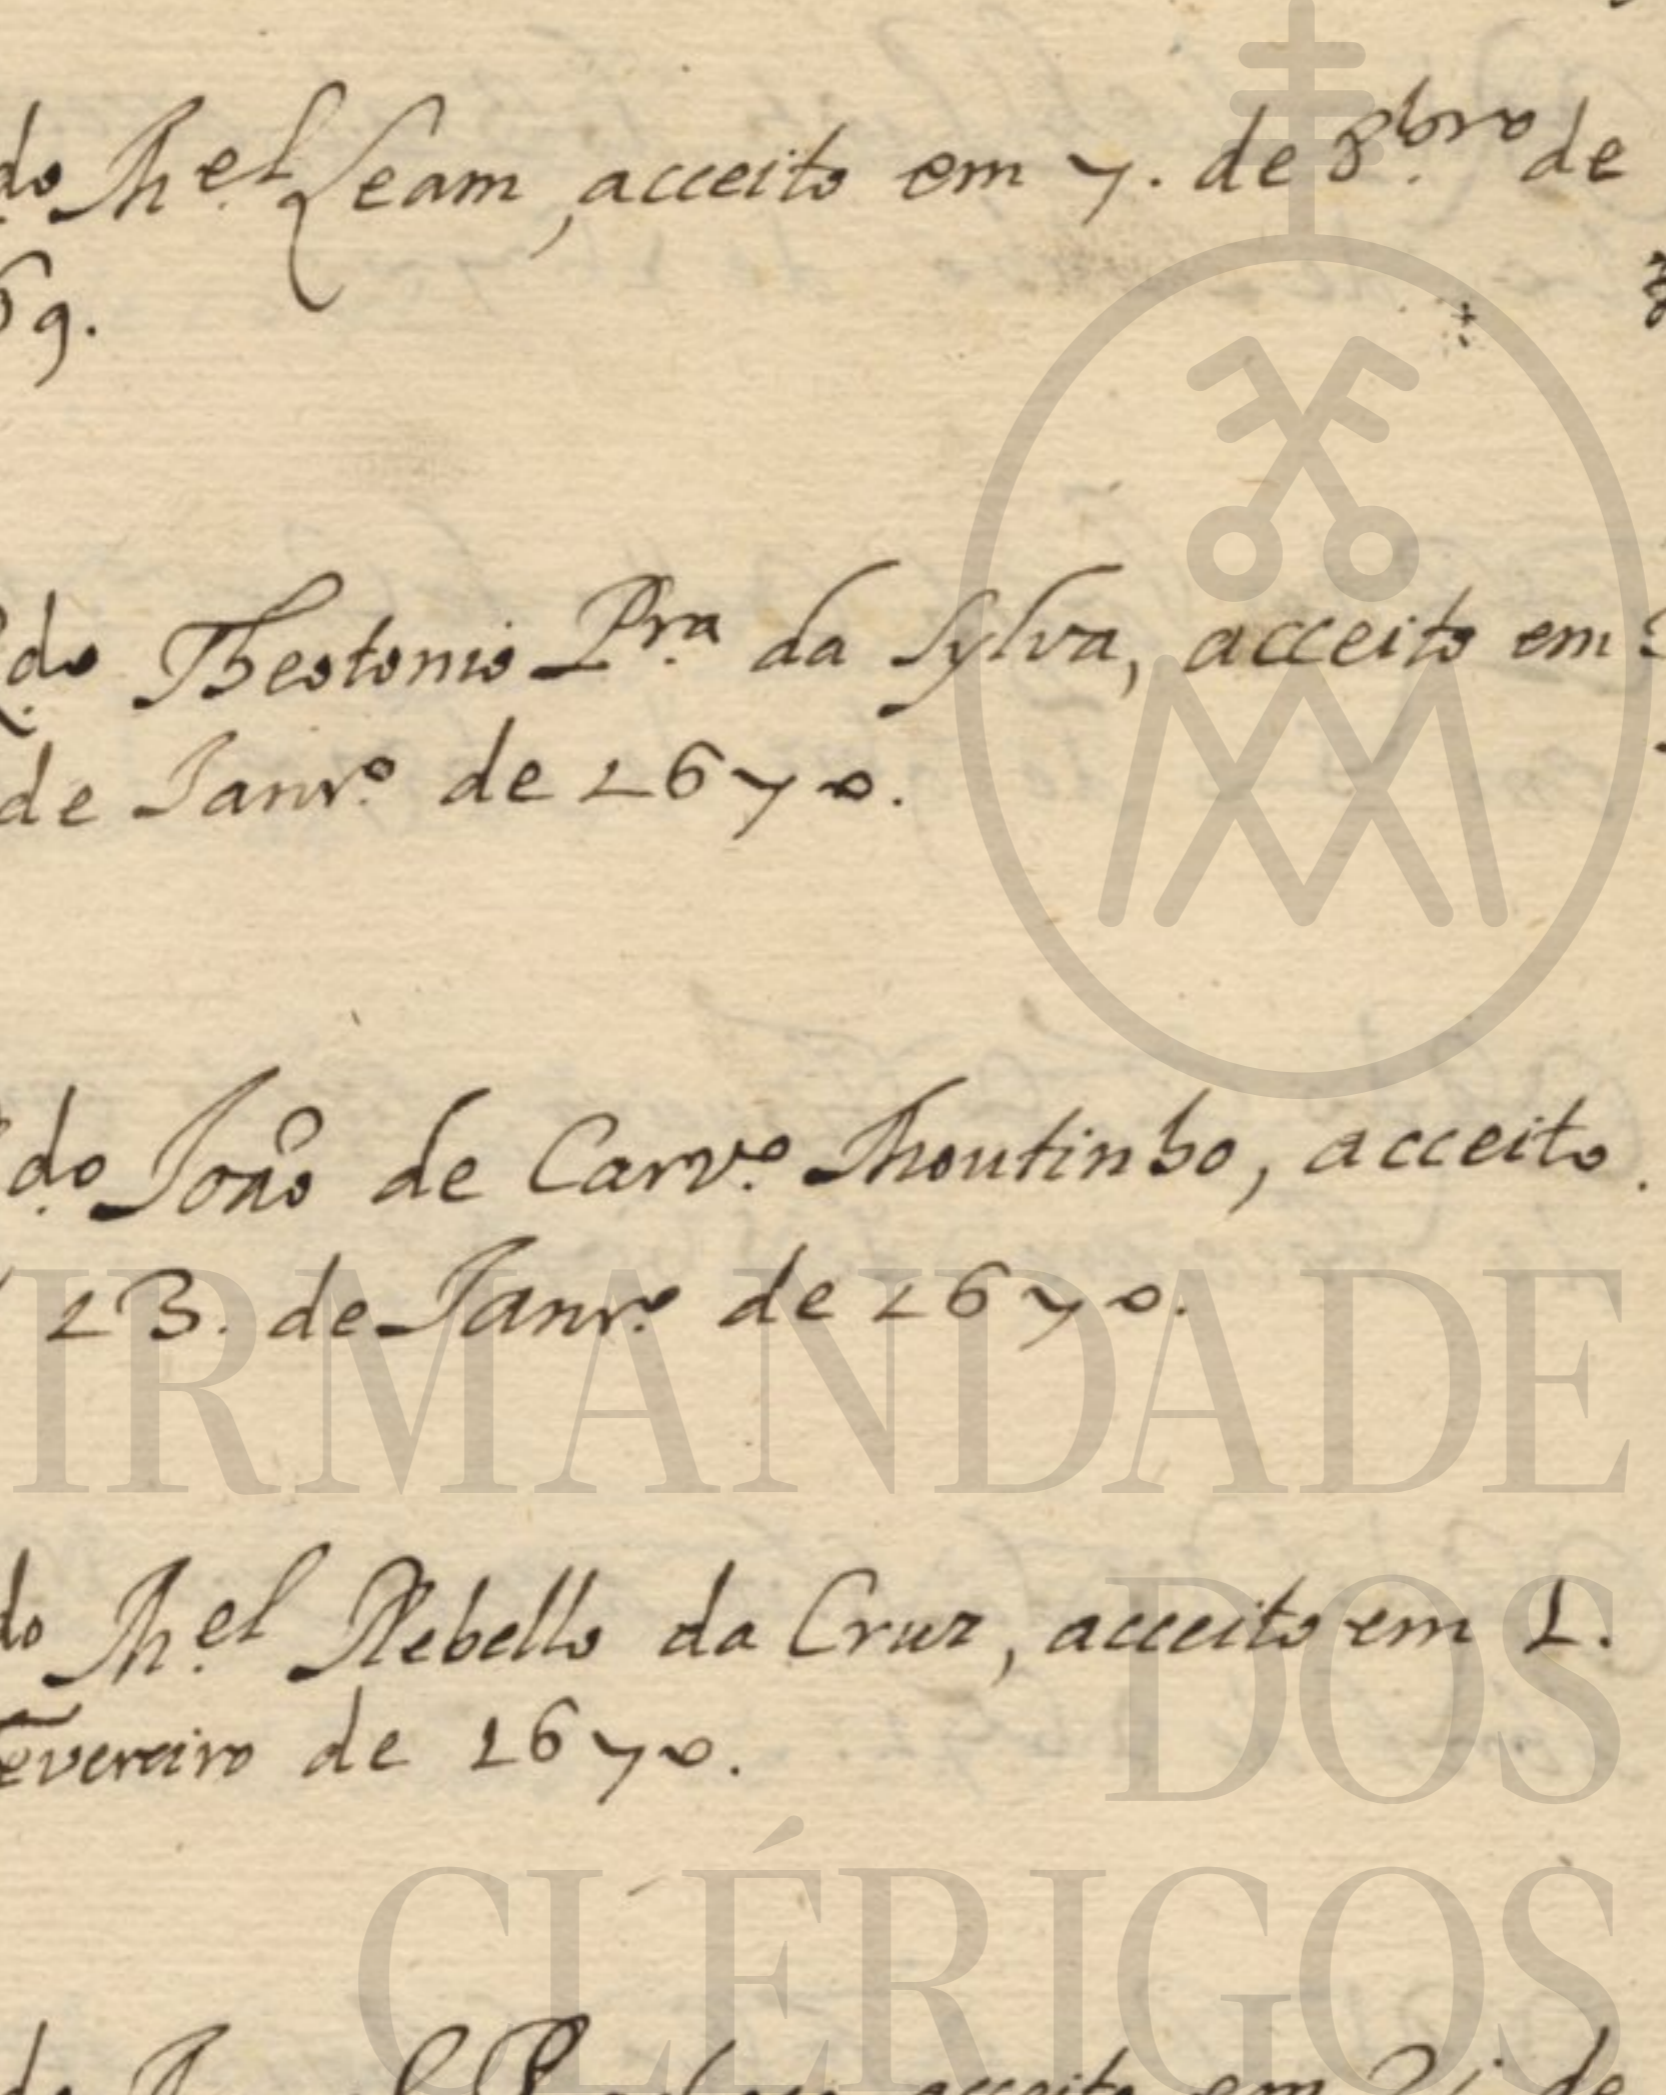 do M.el Leam, acceito em 7. de 8.bro de
69.
do Theotonio Pr.a da Sylva, acceito em
de Janr.o de 1670.
do João de Carv.o Moutinho, acceito.
13. de Janr.o de 1670.
do M.el Rebello da Cruz, acceito em 1.
Fevereiro de 1670.
acceito em 21 de
IRMANDADE
DOS
CLÉRIGOS